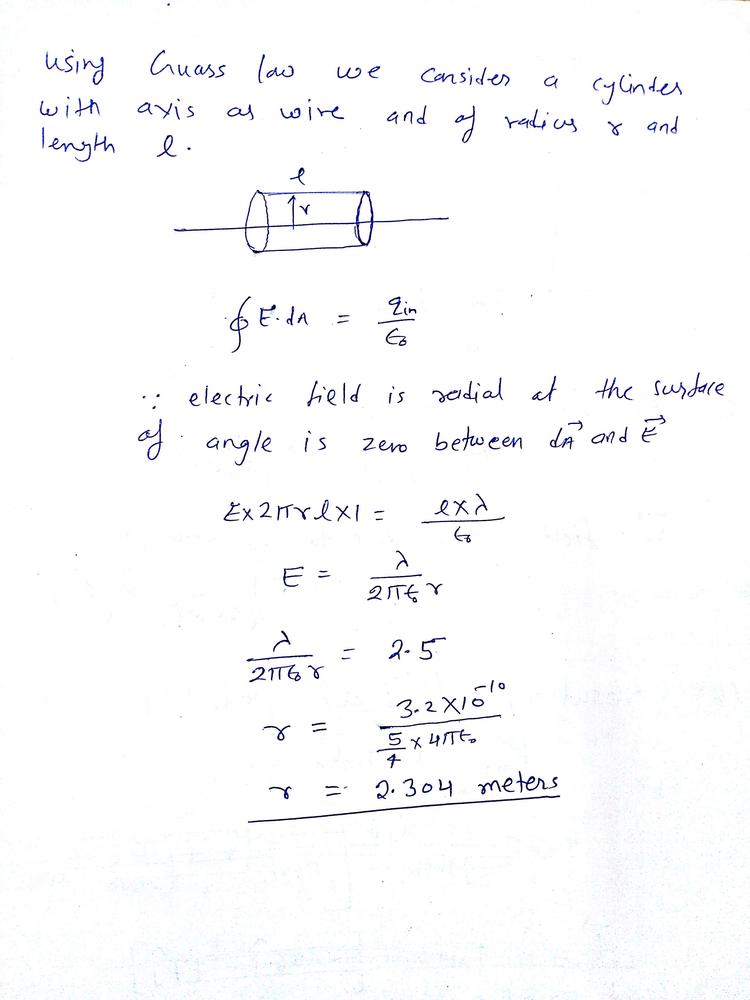 using Guass law we consider a cylinder
with axis as wire and of radius r and
length l.
l
r
∮ E.dA = qin/ε₀
∵ electric field is radial at the surface
of angle is zero between dA⃗ and E⃗
E×2πrl×1 = l×λ/ε₀
E = λ/2πε₀r
λ/2πε₀r = 2.5
r = 3.2×10⁻¹⁰/(5/4 × 4πε₀)
r = 2.304 meters